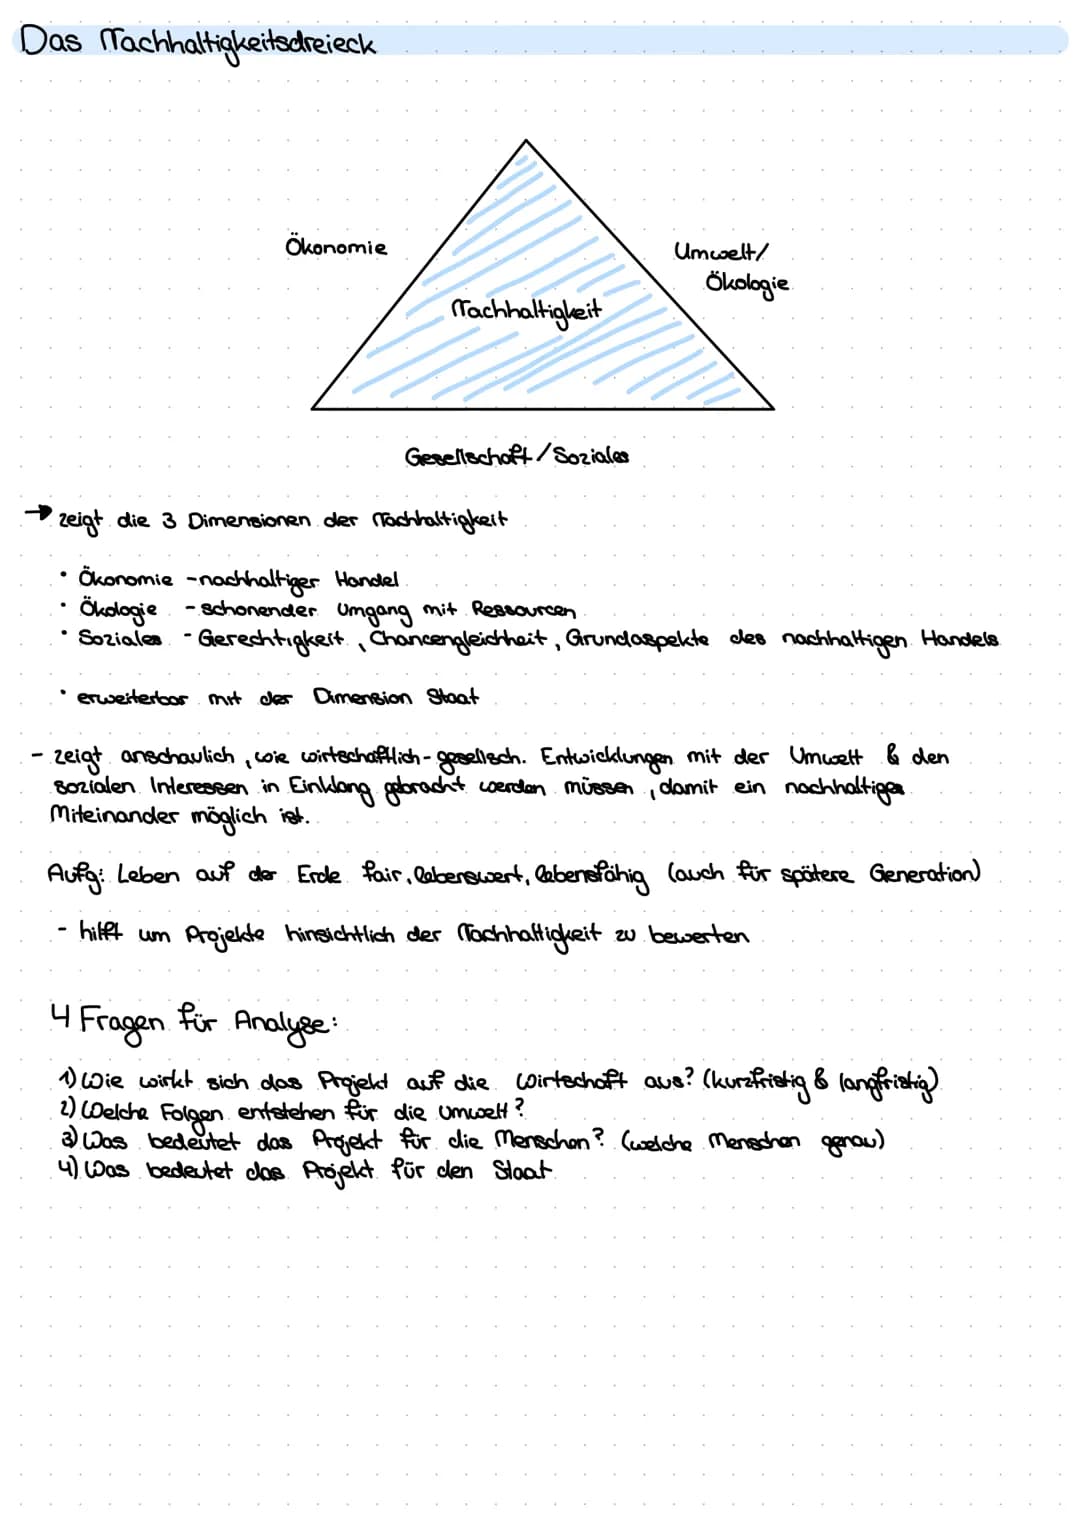 Das Nachhaltigkeitsdreieck
Ökonomie
Umwelt/
Ökologie
Nachhaltigkeit
Gesellschaft/Soziales
→ zeigt die 3 Dimensionen der Nachhaltigkeit
• Ökonomie - nachhaltiger Handel
• Ökologie - schonender Umgang mit Ressourcen
• Soziales - Gerechtigkeit, Chancengleichheit, Grundaspekte des nachhaltigen Handels
• erweiterbar mit der Dimension Staat
- zeigt anschaulich, wie wirtschaftlich-gesellsch. Entwicklungen mit der Umwelt & den
sozialen Interessen in Einklang gebracht werden müssen, damit ein nachhaltiges
Miteinander möglich ist.
Aufg: Leben auf der Erde fair, lebenswert, lebensfähig (auch für spätere Generation)
- hilft um Projekte hinsichtlich der Nachhaltigkeit zu bewerten
4 Fragen für Analyse:
1) Wie wirkt sich das Projekt auf die Wirtschaft aus? (kurzfristig & langfristig)
2) Welche Folgen entstehen für die Umwelt?
3) Was bedeutet das Projekt für die Menschen? (welche Menschen genau)
4) Was bedeutet das Projekt für den Staat